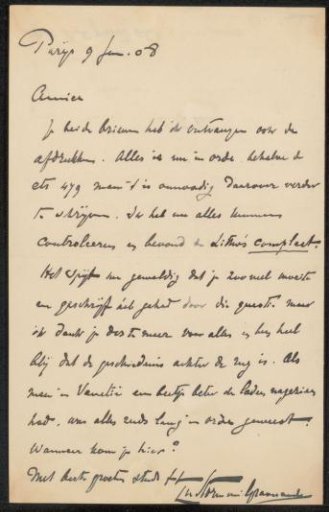 Parijs 9 Jan. 08
Amice
Je beide brieven heb ik ontvangen voor de
afdrukken. Alles is nu in orde behalve de
ets 479 maar 't is onnoodig daarover verder
te schrijven. Ik heb nu alles kunnen
controleeren en bevond de Litho's compleet.
Het spijt me geweldig dat je zooveel moeite
en geschrijf hebt gehad door die quaestie maar
ik dank je des te meer voor alles en ben heel
blij dat de geschiedenis achter de rug is. Als
men in een beetje beter de laden nagezien
had, was alles reeds lang in orde geweest.
Wanneer kom je hier?
Met beste groeten steeds tt